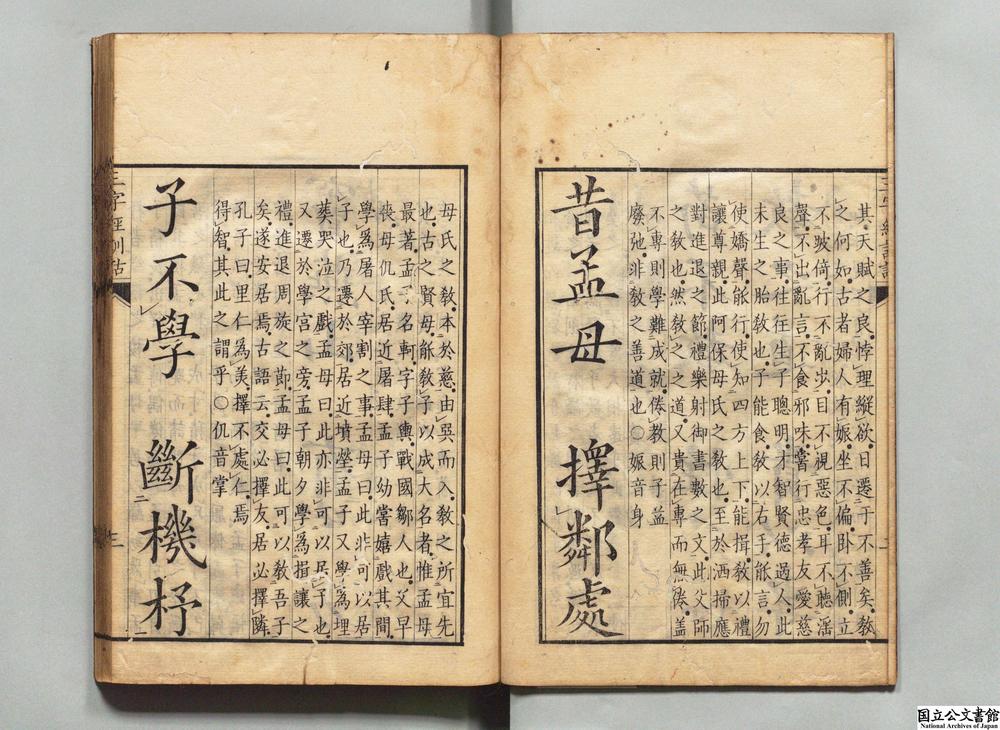 其天賦之良悖理縱欲日遷于不善矣教
之何如古者婦人有娠坐不偏卧不側立
不跛倚行不亂步目不視惡色耳不聽淫
聲不出亂言不食邪味嘗行忠孝友愛慈
良之事往往生子聰明才智賢德過人此
未生之胎教也子能食教以右手能言勿
使嬌聲能行使知四方上下能揖教以禮
讓尊親此阿保母氏之教也至於洒掃應
對進退之節禮樂射御書數之文此父師
之教也然教之之道又貴在專而無倦蓋
不專則學難成就倦教則子益
縻弛非教之善道也○娠音身
昔孟母 擇鄰處
三字經訓詁
母氏之教本於慈由吳而入教之所宜先
也古之賢母能教子以成大名者惟孟母
最著孟子名軻字子輿戰國鄒人也父早
喪母仉氏居近屠肆孟子幼嘗嬉戲其間
學為屠人宰割之事孟母曰此非可以居
子也乃遷於郊居近墳塋孟子又學為埋
葬哭泣之戲孟母曰此亦非可以居子也
又遷於學宮之旁孟子朝夕學為揖讓之
禮進退周旋之節孟母曰此可以教吾子
矣遂安居焉古語云交必擇友居必擇隣
孔子曰里仁為美擇不處仁焉
得智其此之謂乎○仉音掌
子不學 斷機杼
三字經訓詁
国立公文書館
National Archives of Japan